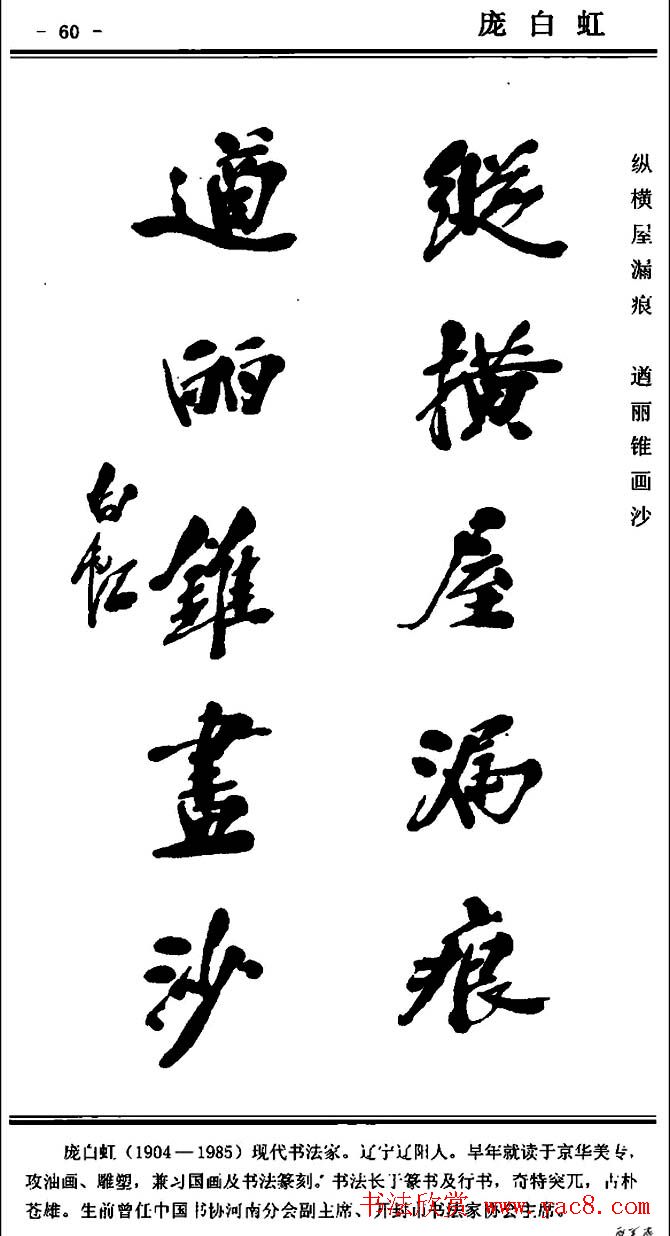 - 60 -
庞白虹
纵横屋漏痕 遒丽锥画沙
縱橫屋漏痕
遒麗錐畫沙
白虹
庞白虹（1904—1985）现代书法家。辽宁辽阳人。早年就读于京华美专，
攻油画、雕塑，兼习国画及书法篆刻。书法长于篆书及行书，奇特突兀，古朴
苍雄。生前曾任中国书协河南分会副主席、开封市书法家协会主席。
书法欣赏 www.yac8.com